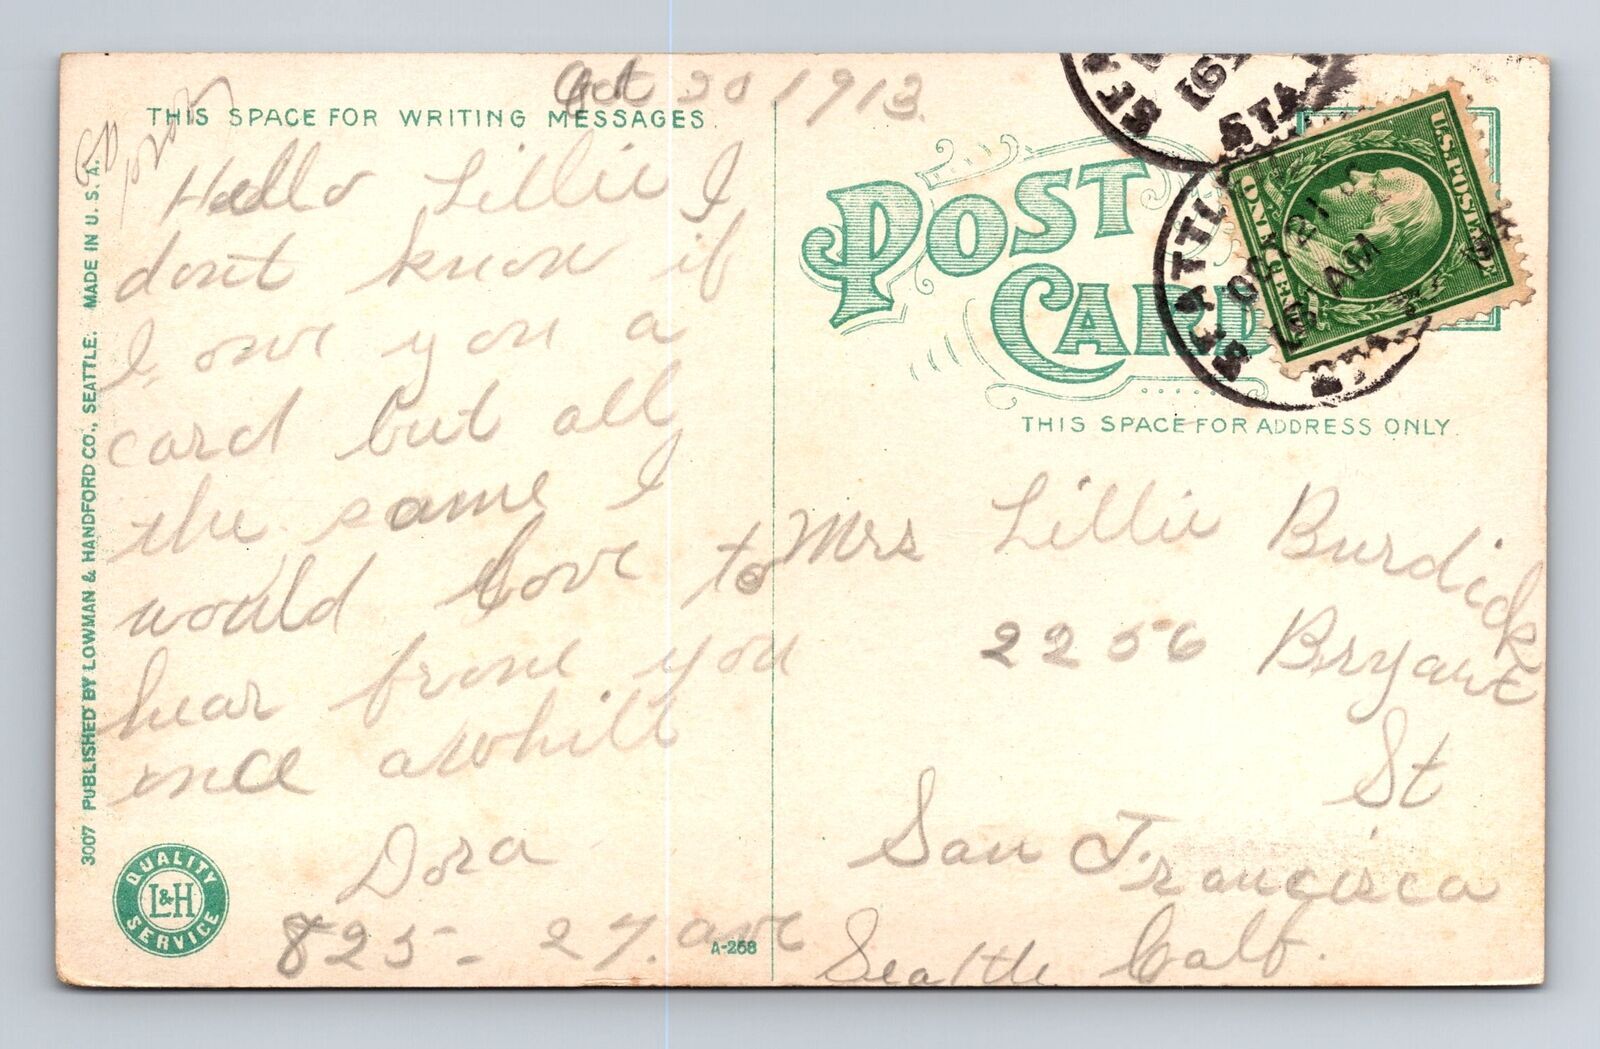 Oct 20 1913.
THIS SPACE FOR WRITING MESSAGES
Hello Lillie I
dont know if
I owe you a
card but all
the same I
would love to
hear from you
once awhile
Dora
825 - 27. ave
Seattle
3007 PUBLISHED BY LOWMAN & HANDFORD CO., SEATTLE. MADE IN U.S.A.
QUALITY
L&H
SERVICE
A-268
POST
CARD
SEATTLE
OCT 21
AM
STA
U.S. POSTAGE
ONE CENT
THIS SPACE FOR ADDRESS ONLY
Mrs Lillie Burdick
2256 Bryant
St
San Francisco
Calf.